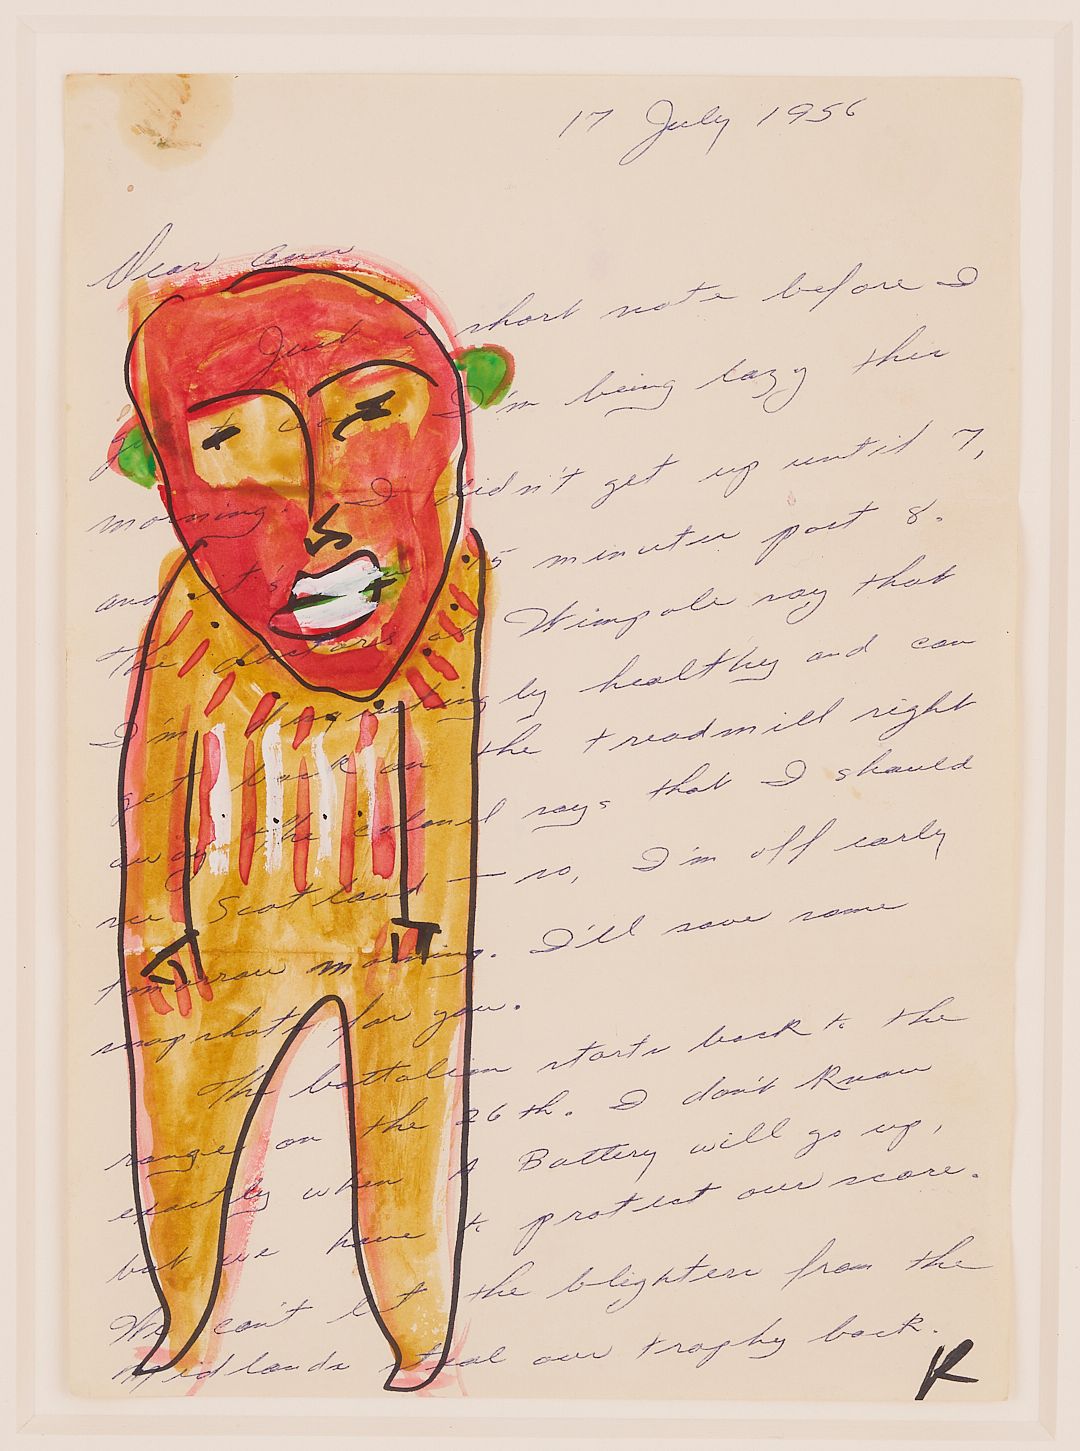 17 July 1956
Dear Ann,
Just a short note before I
go to work. I'm being lazy this
morning. I didn't get up until 7,
and it's now 15 minutes past 8.
The doctors at Wimpole say that
I'm disgustingly healthy and can
get back on the treadmill right
away. The colonel says that I should
see Scotland — so, I'm off early
tomorrow morning. I'll save some
snapshots for you.
The battalion starts back to the
ranges on the 26th. I don't know
exactly when A Battery will go up,
but we have to protect our score.
We can't let the blighters from the
Midlands steal our trophy back.
R